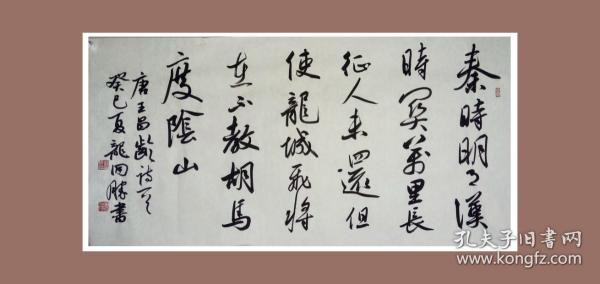 秦時明月漢
時関萬里長
征人未還但
使龍城飛将
在不教胡馬
度陰山
唐王昌齡詩一首
癸巳夏龍回勝書
孔夫子旧书网
www.kongfz.com